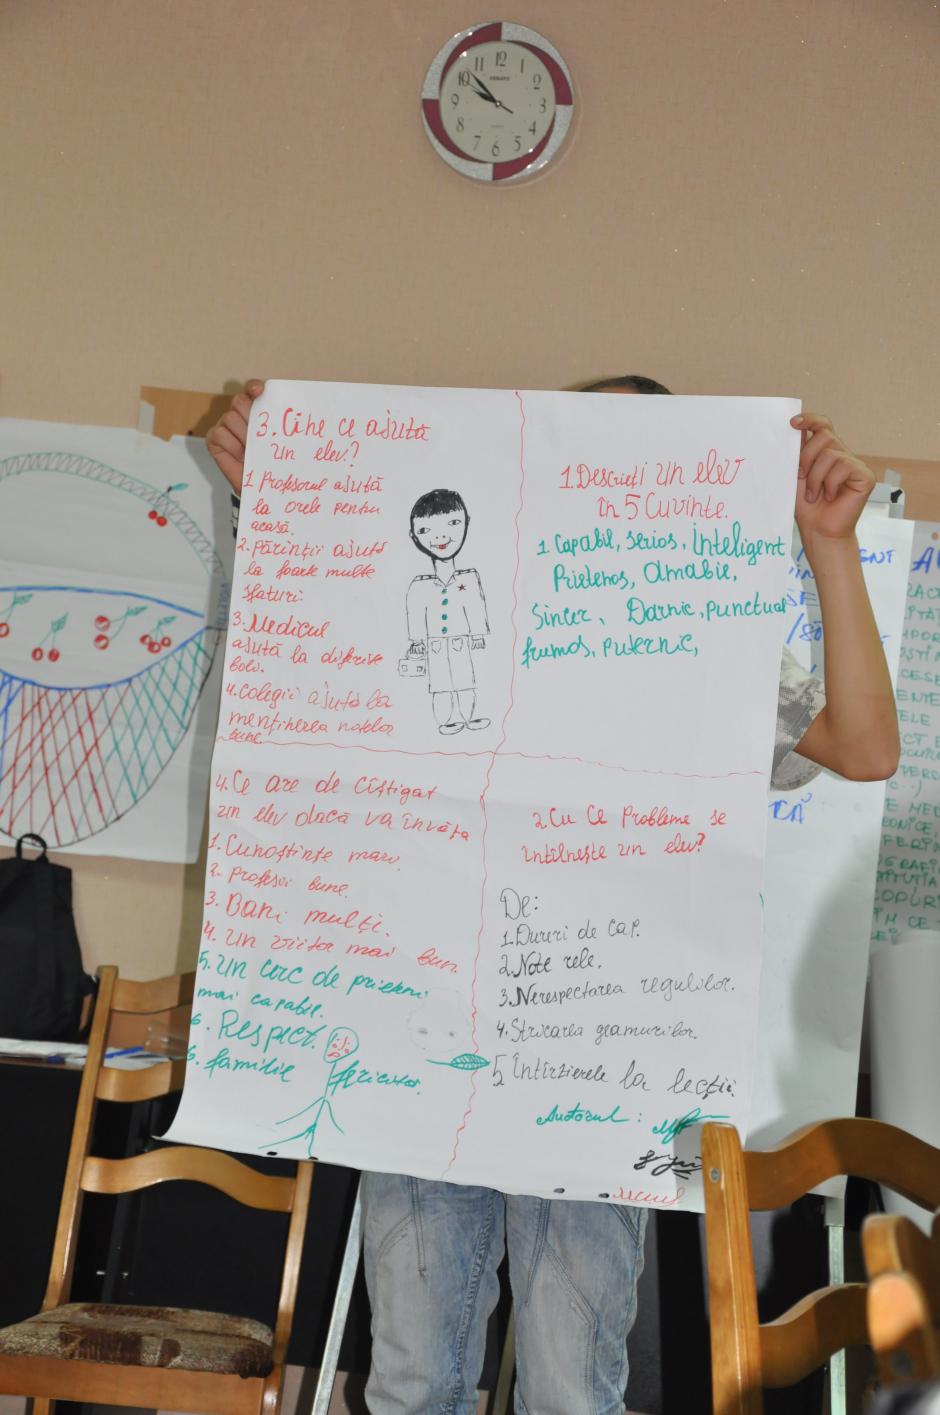 12
1
2
3
4
5
6
7
8
9
10
11
3. Cine ce ajută
un elev?
1 Profesorul ajută
la orele pentru
acasă.
2. Părinții ajută
la foarte multe
sfaturi.
3. Medicul
ajută la diferite
boli.
4. Colegii ajută la
menținerea notelor
bune.
1. Descrieți un elev
în 5 cuvinte.
1 Capabil, serios, inteligent
Prietenos, amabil,
Sincer, Darnic, punctual
frumos, puternic,
4. Ce are de cîștigat
un elev dacă va învăța
1. Cunoștințe mari.
2. Profesii bune.
3. Bani mulți.
4. Un viitor mai bun.
5. Un cerc de prieteni
mai capabil.
6. Respect.
6. familie fericită.
2. Cu ce probleme se
întîlnește un elev?
De:
1. Dureri de cap.
2. Note rele.
3. Nerespectarea regulilor.
4. Stricarea geamurilor.
5 Întîrzierele la lecții.
Auotorul :